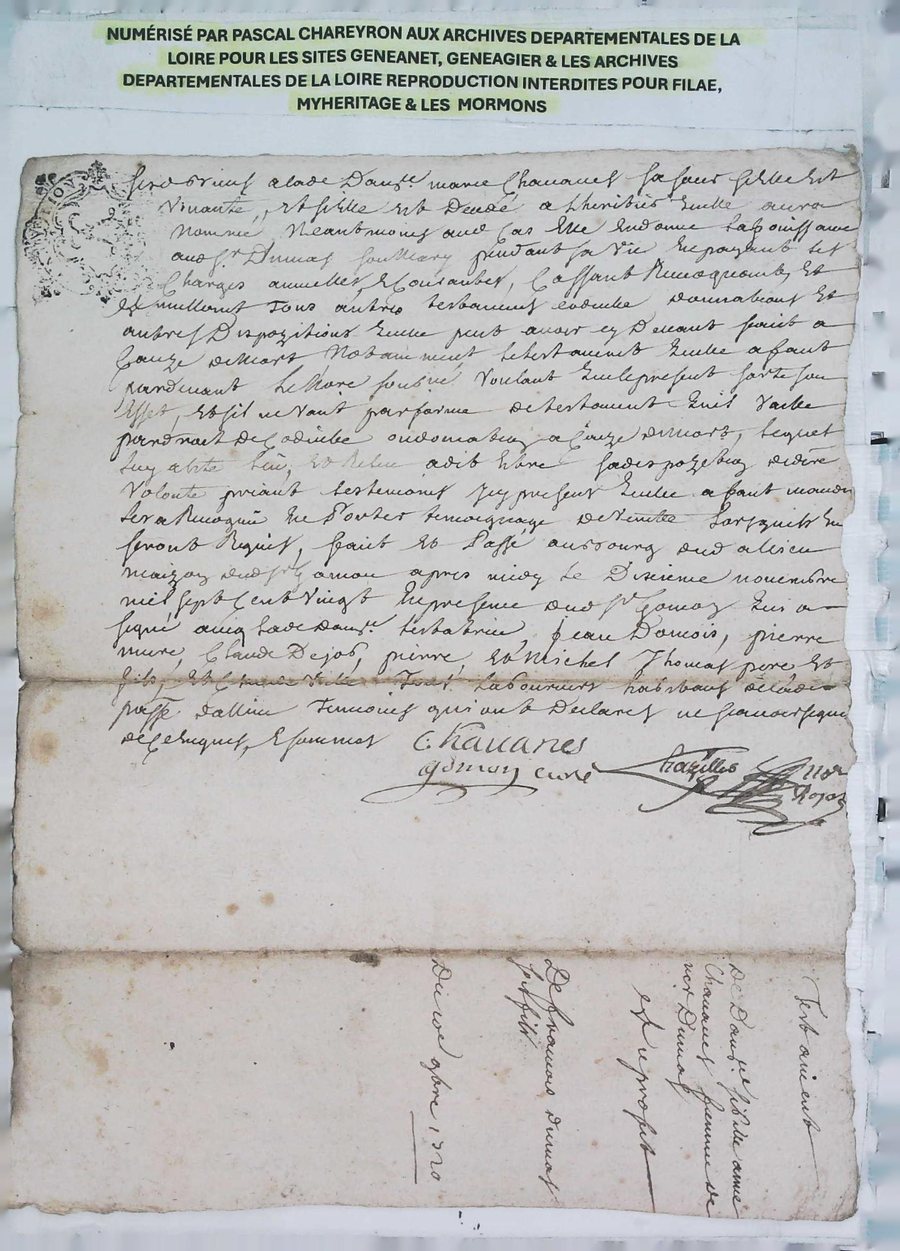 NUMÉRISÉ PAR PASCAL CHAREYRON AUX ARCHIVES DEPARTEMENTALES DE LA
LOIRE POUR LES SITES GENEANET, GENEAGIER & LES ARCHIVES
DEPARTEMENTALES DE LA LOIRE REPRODUCTION INTERDITES POUR FILAE,
MYHERITAGE & LES MORMONS
alade Dauslle marie Chauanes sa seur sy Elle Est
Viuante, Et sy Elle Est Decedé a Lheritier quelle aura
Nommé Neantmoins aud Cas Elle En donne La Jouissance
aud Sr Dumas son Mary pendant sa Vie En payant les
Charges annuelles Et Courantes, Cassant Reuocquant, Et
tous autres testaments codicile donnations Et
autres Dispozitions quelle peut auoir cy Deuant fait a
Cauze de Mort Notamment le testament quelle a fait
pardeuant Le Nore soubné Voulant que le present sorte son
Effet, Et sil ne Vaut par forme de testament quil Vaille
par droit de Codicille ou donnation a Cauze de mort, Lequel
luy a Esté Leu, Et Releu a dit Estre sa dispozition de dere
Volonté priant les temoins Icy present quelle a fait mander
Et a Recogneu En Porter temoignage de Verité Lorsquils En
seront Requis, fait Et Passé au bourg dud allieu
maizon dud Sr Gomon apres midy Le Dixieme nouembre
mil sept Cent Vingt En presence dud Sr Gomon qui a
signé auec lade dauslle testatrice, Jean Damois, pierre
mure, Claude Dejob, pierre, Et Michel Thomas pere Et
fils, Et tous Laboureurs habitans de lade
passe dallieu Temoins qui ont Declarés ne scauoir signer
de Ce Enquis, Et sommes
Chauanes
gomon curé
Chazelles Nore
Royal
Testament
De Dauslle sibille anne
Chauanes femme de
nor Dumas
est a profit
De francois dumas
son fils
Du 10e 9bre 1720